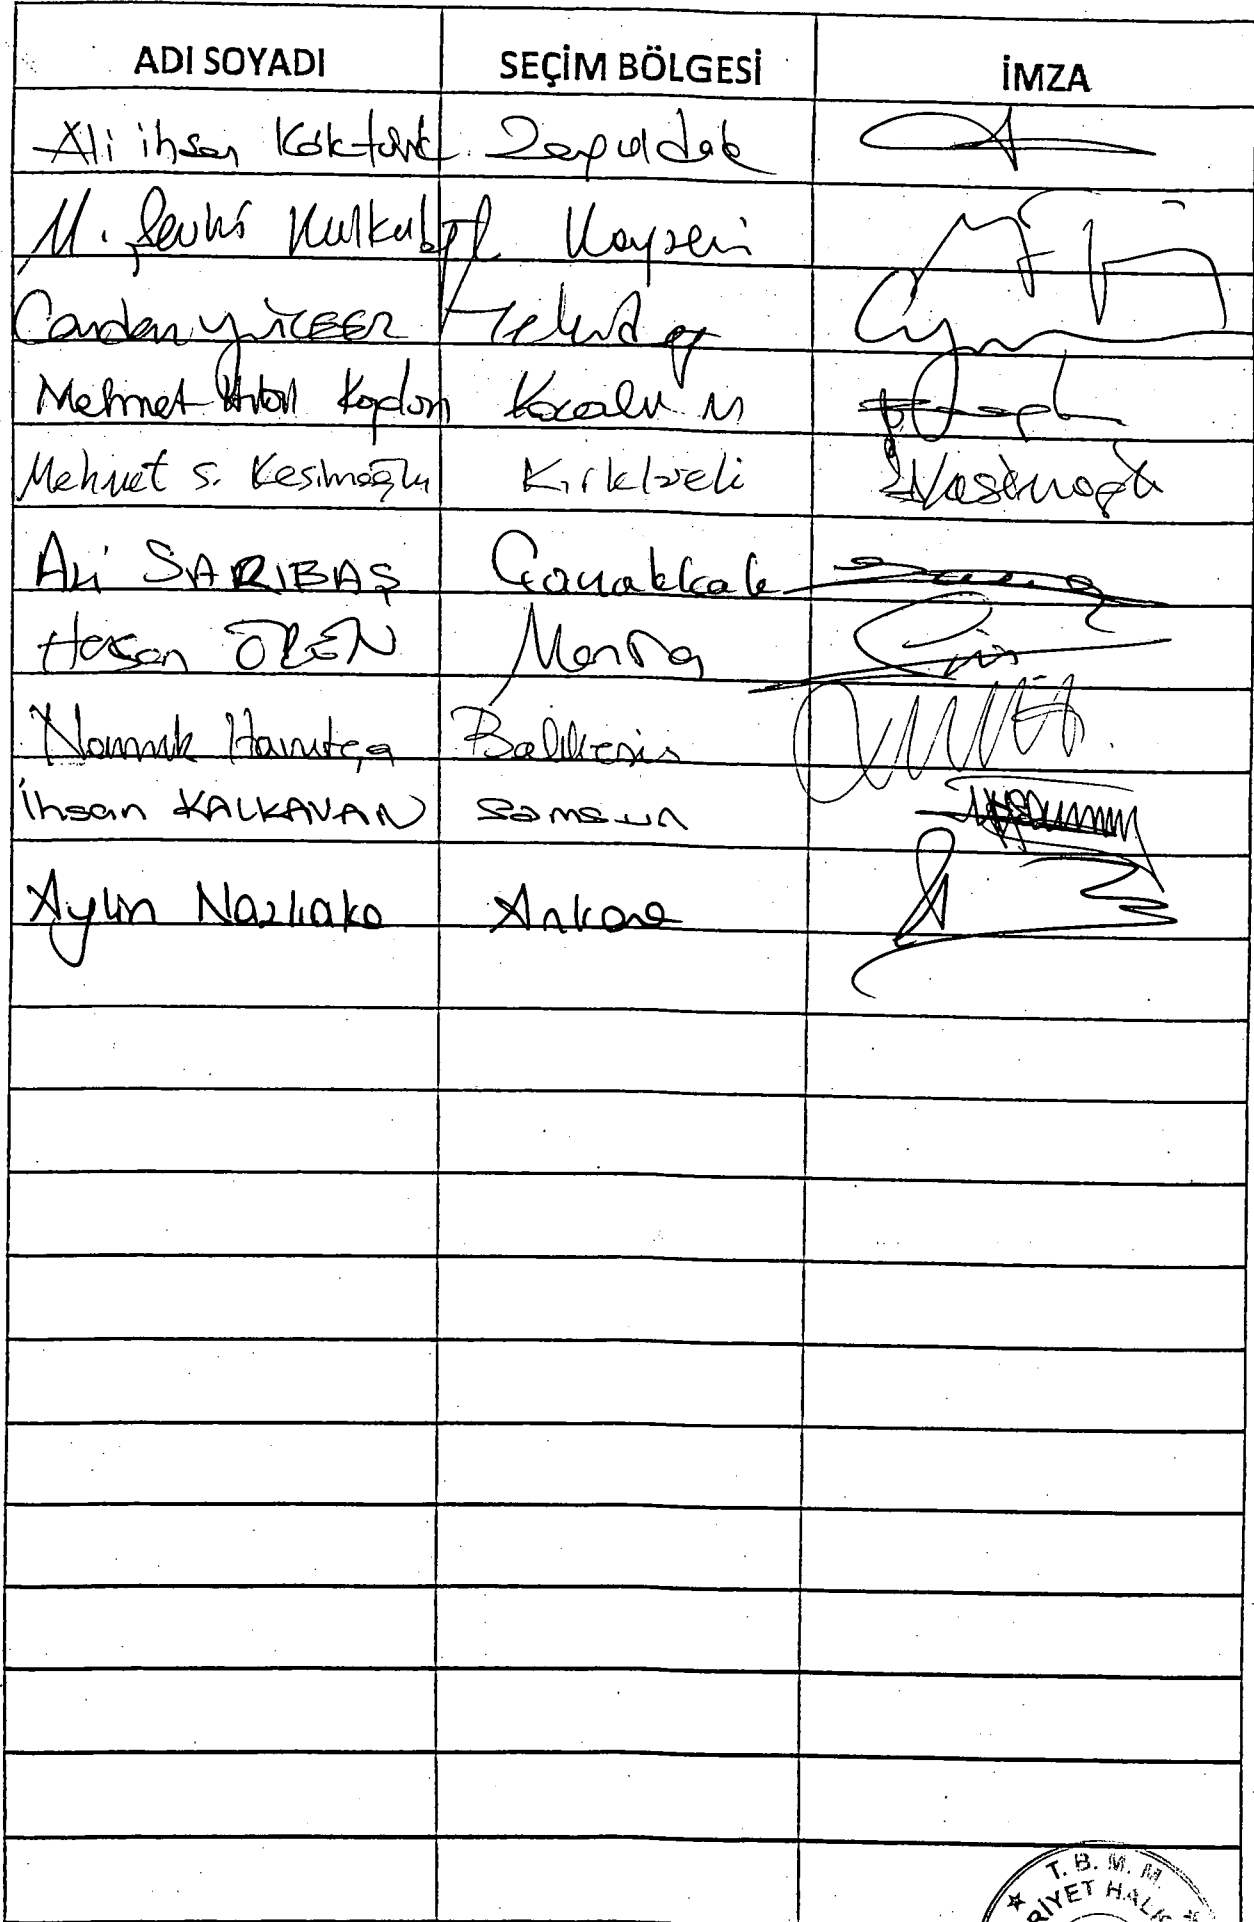 ADI SOYADI SEÇİM BÖLGESİ İMZA
Ali ihsan Köktürk Zonguldak
M. Şevki Kulkuloğlu Kayseri
Candan YÜCEER Tekirdağ
Mehmet Hilal Kaplan Kocaeli
Mehmet S. Kesimoğlu Kırklareli
Ali SARIBAŞ Çanakkale
Hasan ÖREN Manisa
Namık Havutça Balıkesir
İhsan KALKAVAN Samsun
Aylin Nazlıaka Ankara
T. B. M. M.
RİYET HALK